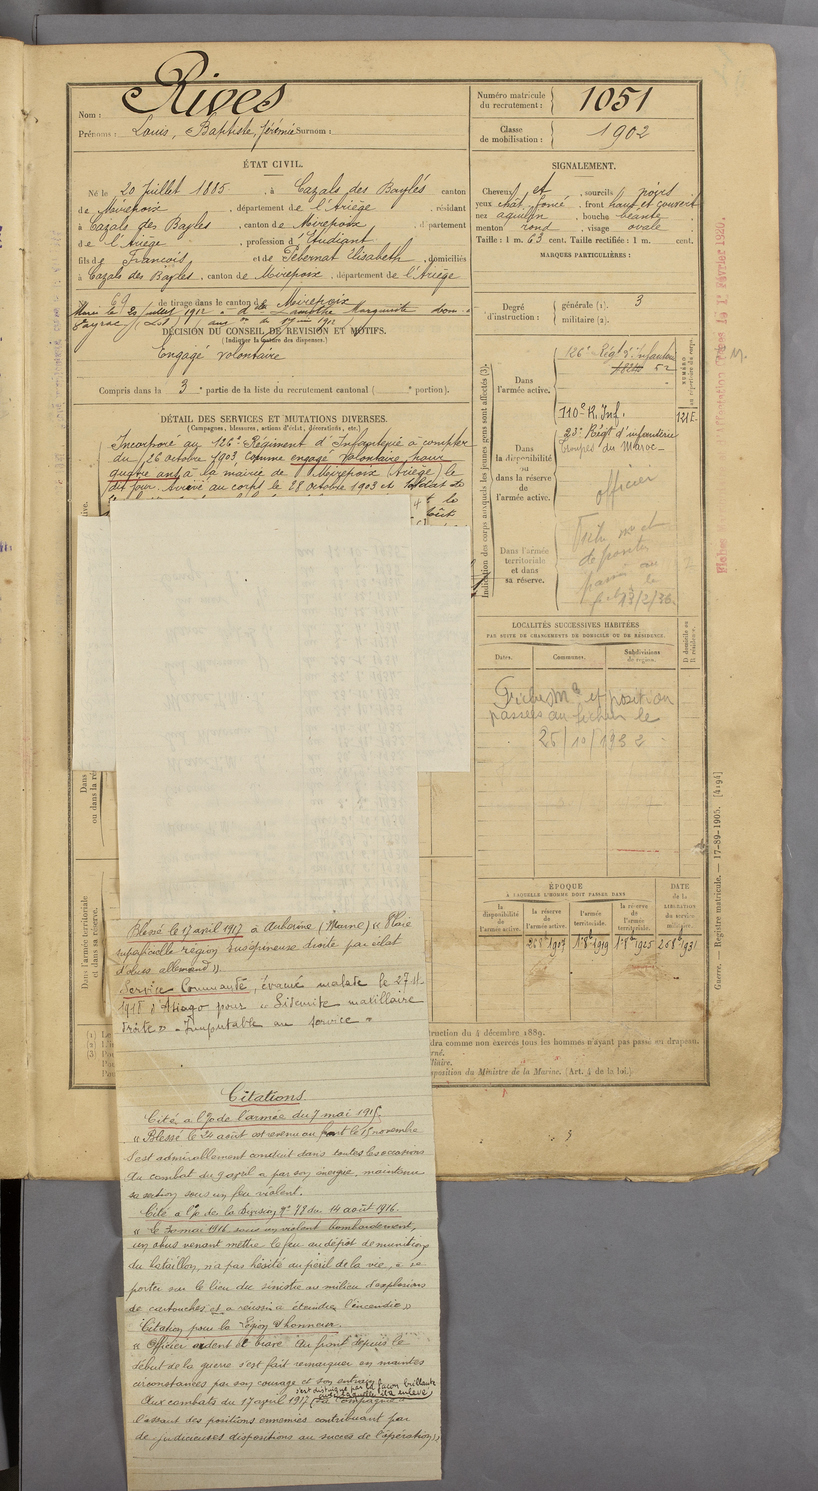 Nom : Rives
Prénoms : Louis, Baptiste, Jérémie Surnom :
Numéro matricule du recrutement : 1051
Classe de mobilisation : 1902
ÉTAT CIVIL.
Né le 20 Juillet 1885, à Cazals des Baylès canton
de Mirepoix, département de l'Ariège, résidant
à Cazals des Bayles, canton de Mirepoix, département
de l'Ariège, profession d'Etudiant
fils de François et de Pebernat Elisabeth, domiciliés
à Cazals des Bayles, canton de Mirepoix, département de l'Ariège
69 de tirage dans le canton de Mirepoix
Marié le 20 juillet 1912 à dlle Lamothe Marguerite dom. à
DÉCISION DU CONSEIL DE REVISION ET MOTIFS.
(Indiquer la nature des dispenses.)
Engagé volontaire
Compris dans la 3e partie de la liste du recrutement cantonal ( portion).
SIGNALEMENT.
Cheveux et sourcils noirs
yeux chât. foncé, front haut et couvert
nez aquilin, bouche béante
menton rond, visage ovale
Taille : 1 m. 63 cent. Taille rectifiée : 1 m. cent.
MARQUES PARTICULIÈRES :
Degré d'instruction : générale (1). 3
militaire (2).
DÉTAIL DES SERVICES ET MUTATIONS DIVERSES.
(Campagnes, blessures, actions d'éclat, décorations, etc.)
Incorporé au 126e Régiment d'Infanterie à compter
du 26 octobre 1903 comme engagé volontaire pour
quatre ans à la mairie de Mirepoix (Ariège) le
dit jour. Arrivé au corps le 28 octobre 1903 et soldat de
Indication des corps auxquels les jeunes gens sont affectés (3).
NUMÉRO au répertoire du corps.
Dans l'armée active.
126e Régt d'Infanterie
52
110e R. Inf. 121E
Dans la disponibilité ou dans la réserve de l'armée active.
23e Régt d'infanterie
Troupes du Maroc
officier
Dans l'armée territoriale et dans sa réserve.
13/2/36
LOCALITÉS SUCCESSIVES HABITÉES
PAR SUITE DE CHANGEMENTS DE DOMICILE OU DE RÉSIDENCE.
Dates. Communes. Subdivisions de région. D domicile ou R résidence.
Fiches Mle et position
passées au fichier le
25/10/1932
ÉPOQUE
À LAQUELLE L'HOMME DOIT PASSER DANS
DATE de la LIBÉRATION du service militaire.
la disponibilité de l'armée active. la réserve de l'armée active. l'armée territoriale. la réserve de l'armée territoriale.
26 8bre 1907 1er 8bre 1919 1er 8bre 1925 26 8bre 1931
Dans l'armée territoriale et dans sa réserve.
Guerre. — Registre matricule. — 17-89-1905. [4194]
1er Février 1920.
ruction du 4 décembre 1889.
dra comme non exercés tous les hommes n'ayant pas passé au drapeau.
position du Ministre de la Marine. (Art. 4 de la loi.)
Blessé le 17 avril 1917 à Aubérive (Marne) « Plaie
superficielle région susépineuse droite par éclat
d'obus allemand ».
Service Commandé, évacué malade le 27
1918 d'Asiago pour « Sinusite maxillaire
droite » « Imputable au service »
Citations
Cité à l'o/ de l'armée du 7 mai 1915.
« Blessé le 24 août est revenu au front le 15 novembre
s'est admirablement conduit dans toutes les occasions
Au combat du 9 avril a par son énergie, maintenu
sa section sous un feu violent.
Cité à l'o/ de la Division No 78 du 14 août 1916.
« Le 30 mai 1916 sous un violent bombardement,
un obus venant mettre le feu au dépôt de munitions
du bataillon, n'a pas hésité au péril de la vie, à se
porter sur le lieu du sinistre au milieu d'explosions
de cartouches et a réussi à éteindre l'incendie »
Citation pour la Légion d'honneur.
« Officier ardent et brave. Au front depuis le
début de la guerre s'est fait remarquer en maintes
circonstances par son courage et son entrain
s'est distingué par la façon brillante
avec laquelle il a enlevé
Aux combats du 17 avril 1917 (sa compagnie
l'assaut des positions ennemies contribuant par
de judicieuses dispositions au succès de l'opération »